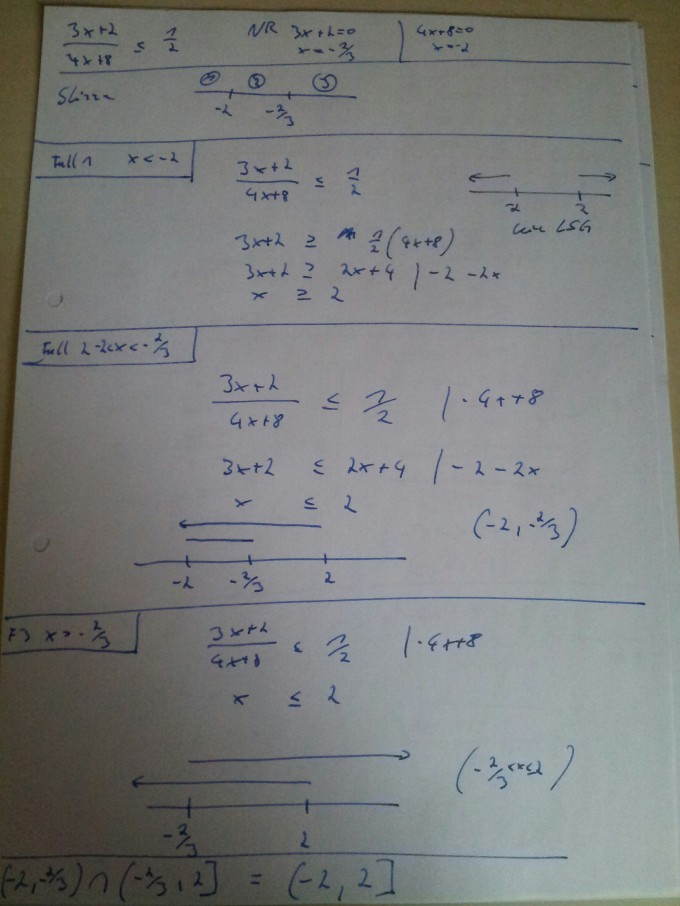 (3x+2)/(4x+8) ≤ 1/2   NR   3x+2=0   | 4x+8=0
x=-2/3   x=-2
Skizze   ① ② ③
-2   -2/3
Fall 1   x < -2
(3x+2)/(4x+8) ≤ 1/2
-2   2
kein LSG
3x+2 ≥ 1/2 (4x+8)
3x+2 ≥ 2x+4 | -2 -2x
x ≥ 2
Fall 2 -2<x<-2/3
(3x+2)/(4x+8) ≤ 1/2 | · 4x+8
3x+2 ≤ 2x+4 | -2 -2x
x ≤ 2
(-2, -2/3)
-2   -2/3   2
F3 x > -2/3
(3x+2)/(4x+8) ≤ 1/2 | · 4x+8
x ≤ 2
(-2/3 <x≤2)
-2/3   2
(-2,-2/3) ∩ (-2/3, 2] = (-2, 2]